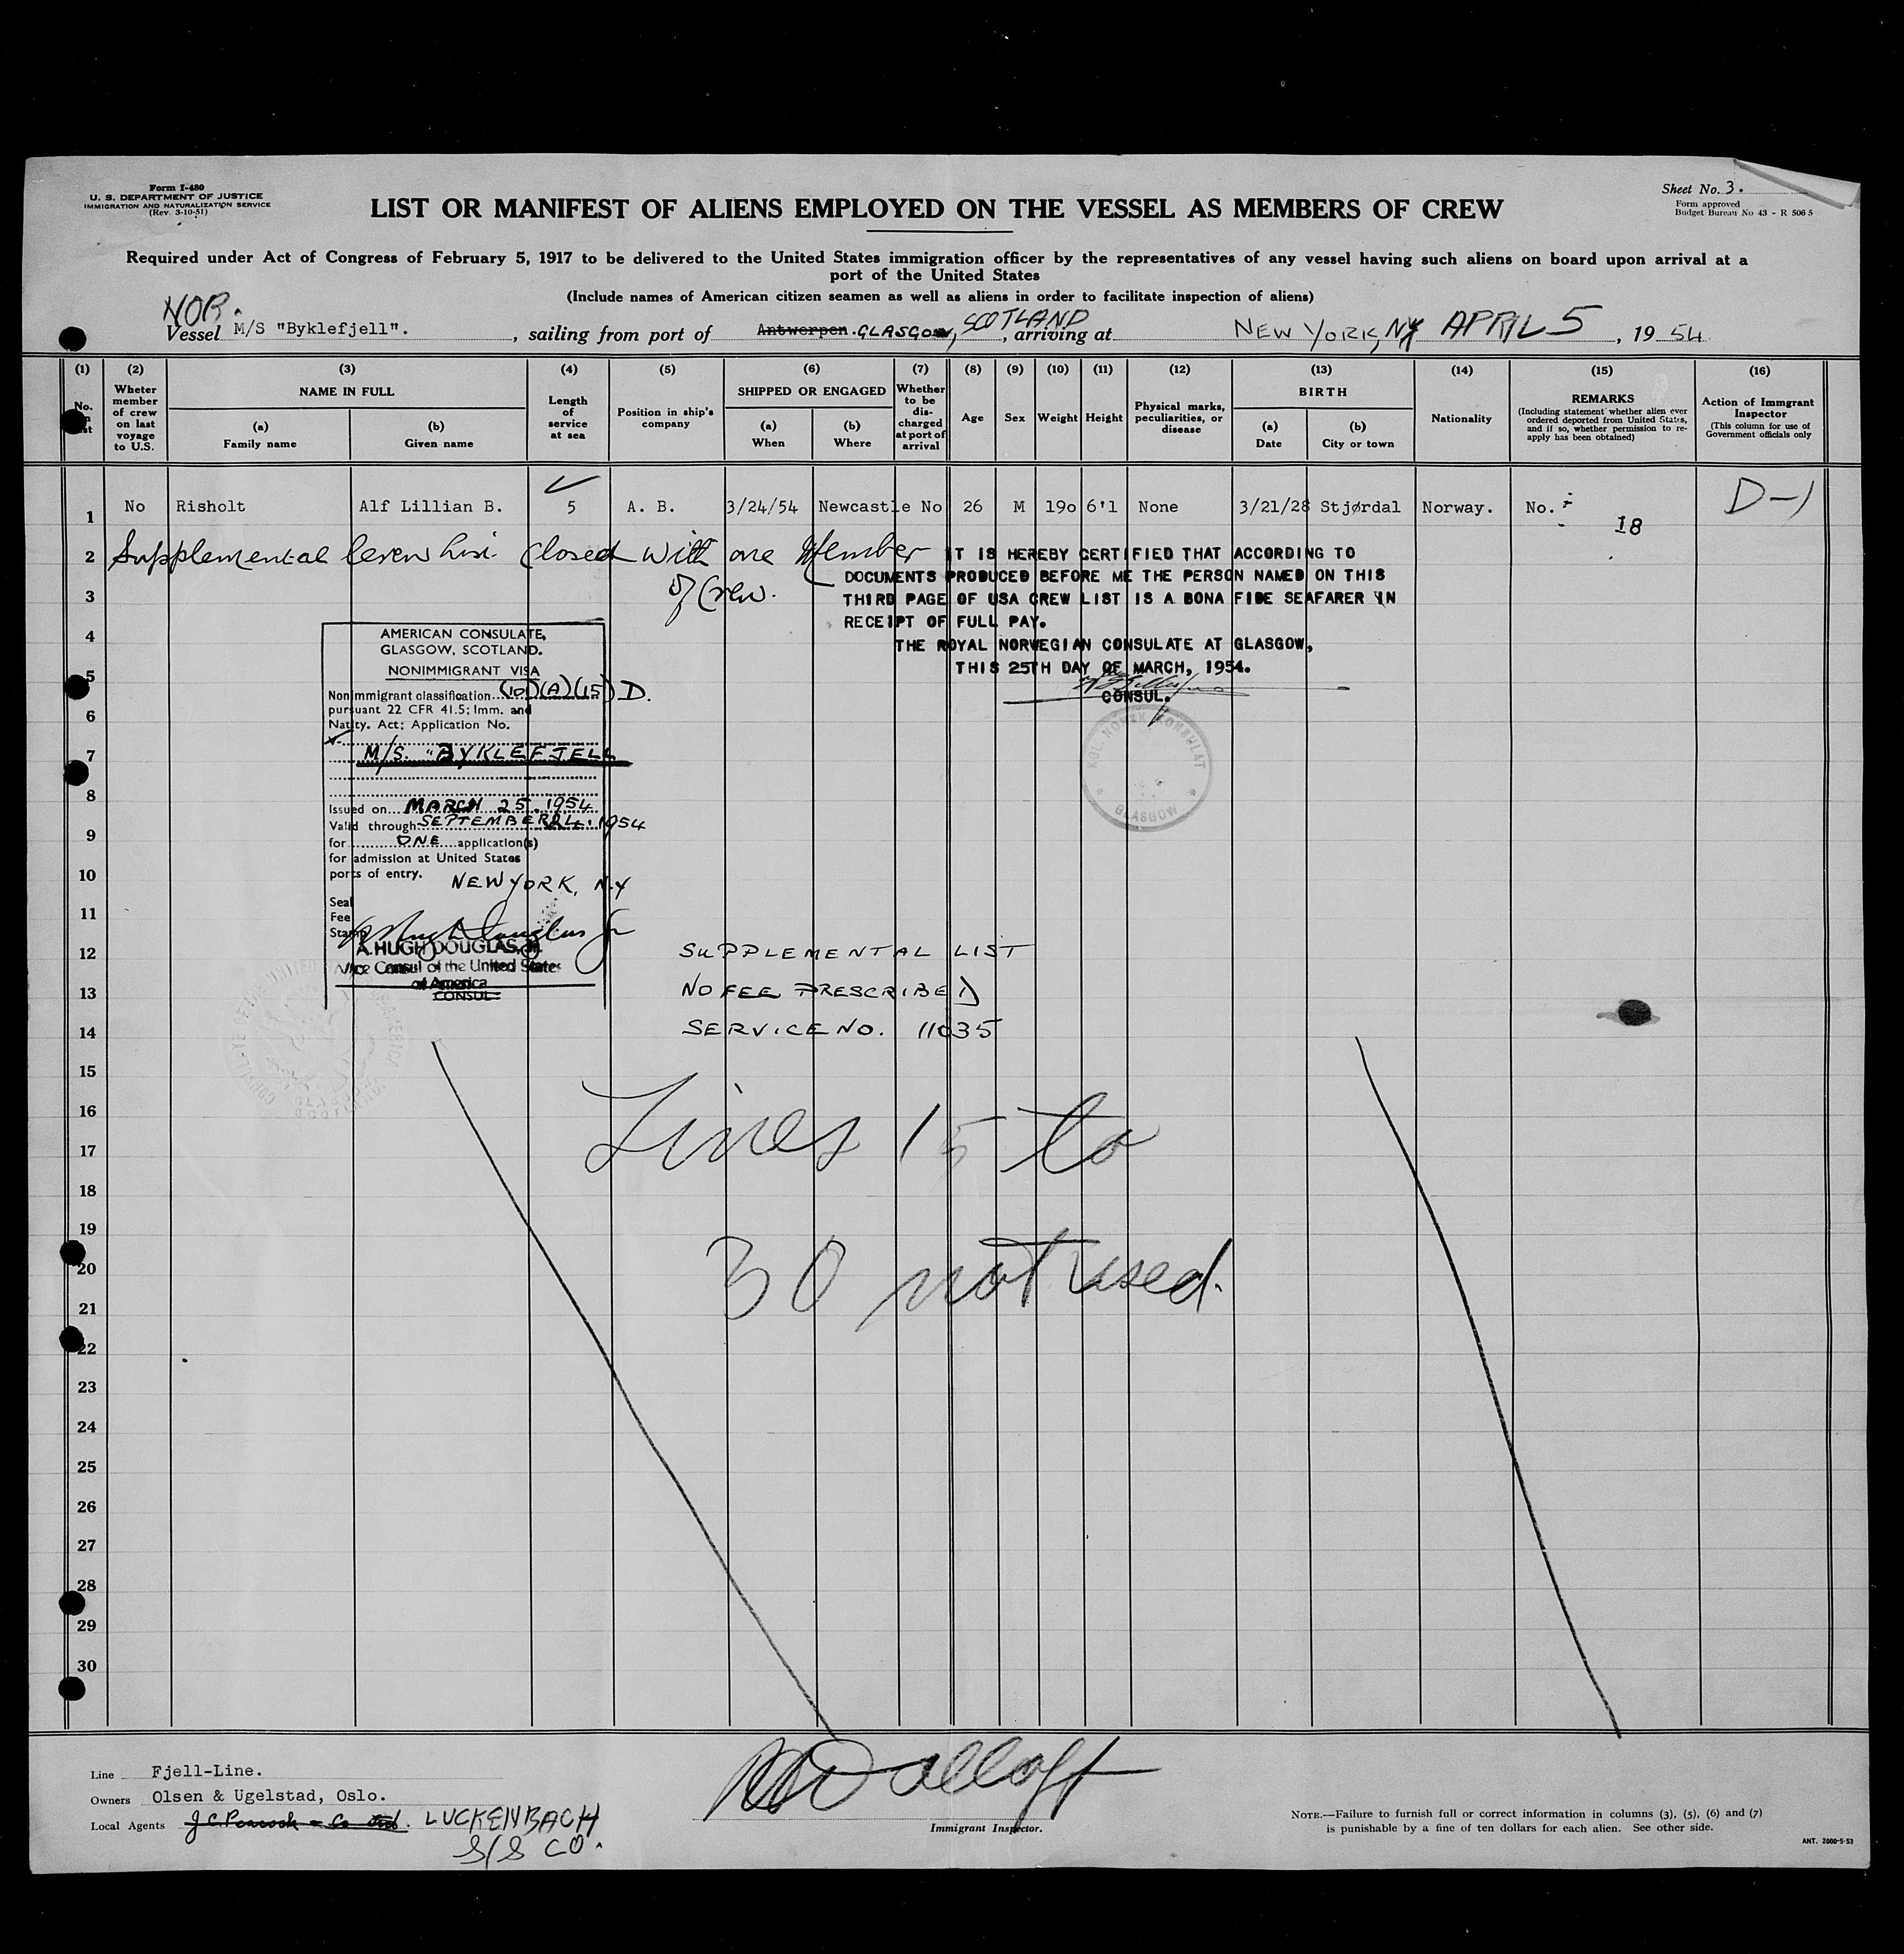 Form I-480
U. S. DEPARTMENT OF JUSTICE
IMMIGRATION AND NATURALIZATION SERVICE
(Rev. 3-10-51)
Sheet No. 3.
Form approved
Budget Bureau No 43 - R 506 5
LIST OR MANIFEST OF ALIENS EMPLOYED ON THE VESSEL AS MEMBERS OF CREW
Required under Act of Congress of February 5, 1917 to be delivered to the United States immigration officer by the representatives of any vessel having such aliens on board upon arrival at a
port of the United States
(Include names of American citizen seamen as well as aliens in order to facilitate inspection of aliens)
NOR.
Vessel M/S "Byklefjell". , sailing from port of Antwerpen. GLASGOW, SCOTLAND , arriving at NEW YORK, NY APRIL 5 , 19 54
(1) (2) (3) (4) (5) (6) (7) (8) (9) (10) (11) (12) (13) (14) (15) (16)
No.
Wheter member of crew on last voyage to U.S.
NAME IN FULL
(a) Family name
(b) Given name
Length of service at sea
Position in ship's company
SHIPPED OR ENGAGED
(a) When
(b) Where
Whether to be dis-charged at port of arrival
Age
Sex
Weight
Height
Physical marks, peculiarities, or disease
BIRTH
(a) Date
(b) City or town
Nationality
REMARKS
(Including statement whether alien ever ordered deported from United States, and if so, whether permission to re-apply has been obtained)
Action of Immgrant Inspector
(This column for use of Government officials only
1 No Risholt Alf Lillian B. 5 A. B. 3/24/54 Newcastle No 26 M 19o 6'1 None 3/21/28 Stjørdal Norway. No. 18 D-1
2 Supplemental Crew List Closed with one Member
3 of Crew.
IT IS HEREBY CERTIFIED THAT ACCORDING TO
DOCUMENTS PRODUCED BEFORE ME THE PERSON NAMED ON THIS
THIRD PAGE OF USA CREW LIST IS A BONA FIDE SEAFARER IN
RECEIPT OF FULL PAY.
THE ROYAL NORWEGIAN CONSULATE AT GLASGOW,
THIS 25TH DAY OF MARCH, 1954.
CONSUL.
KGL. NORSK KONSULAT
* GLASGOW *
AMERICAN CONSULATE,
GLASGOW, SCOTLAND.
NONIMMIGRANT VISA
Nonimmigrant classification (101)(A)(15) D.
pursuant 22 CFR 41.5; Imm. and
Natlty. Act; Application No.
M/S. "BYKLEFJELL
Issued on MARCH 25. 1954
Valid through SEPTEMBER 24. 1954
for ONE application(s)
for admission at United States
ports of entry. NEW YORK, N.Y
Seal
Fee
Stamp
A. HUGH DOUGLAS, Jr.
Vice Consul of the United States
of America
CONSUL
4
5
6
7
8
9
10
11
12
13
14
SUPPLEMENTAL LIST
NO FEE PRESCRIBED
SERVICE NO. 11035
15
16
17
18
19
20
21
22
23
24
25
26
27
28
29
30
Lines 15 to
30 not used.
Line Fjell-Line.
Owners Olsen & Ugelstad, Oslo.
Local Agents J.C. Peacock & Co Ltd. LUCKENBACH
S/S CO.
Immigrant Inspector.
NOTE.—Failure to furnish full or correct information in columns (3), (5), (6) and (7)
is punishable by a fine of ten dollars for each alien. See other side.
ANT. 2000-5-53